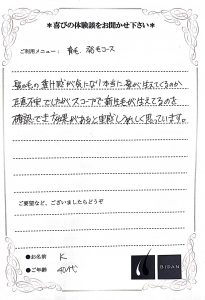 ＊喜びの体験談をお聞かせ下さい＊
ご利用メニュー： 育毛、発毛コース
髪の毛の重け感が気になり本当に髪が生えてくるのか
正直不安でしたがスコープで新生毛が生えてくるのを
確認でき効果があると実感しうれしく思っています。
ご要望など、ございましたらどうぞ
●お名前 K
●ご年齢 40代
BIDAN